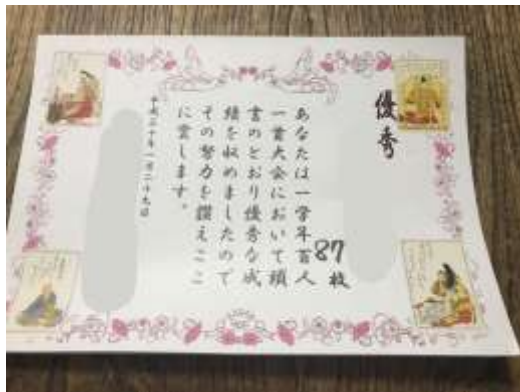 優秀
87枚
あなたは一学年百人
一首大会において頭
書のとおり優秀な成
績を収めましたので
その努力を讃えここ
に賞します。
平成三十年一月二十九日